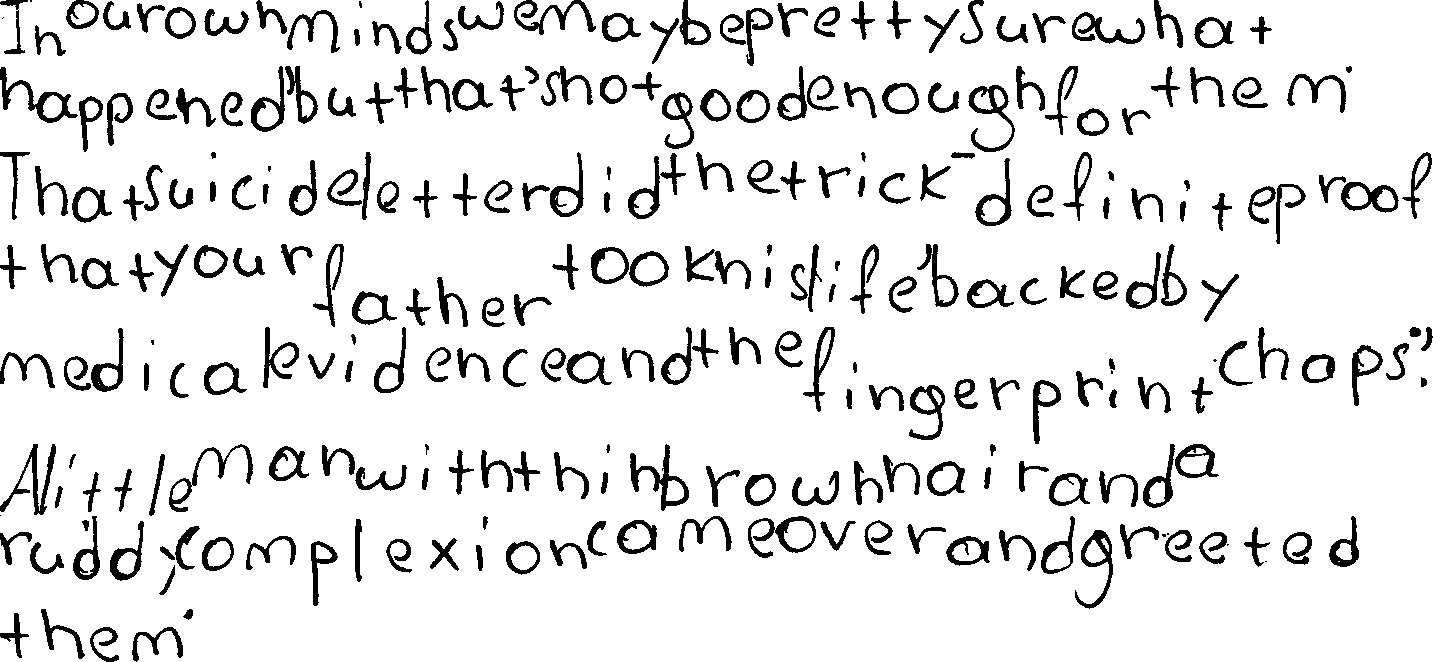 In our own minds we may be pretty sure what
happened but that's not good enough for them.
That suicide letter did the trick - definite proof
that your father took his life, backed by
medical evidence and the fingerprint chaps."
A little man with thin brown hair and a
ruddy complexion came over and greeted
them.